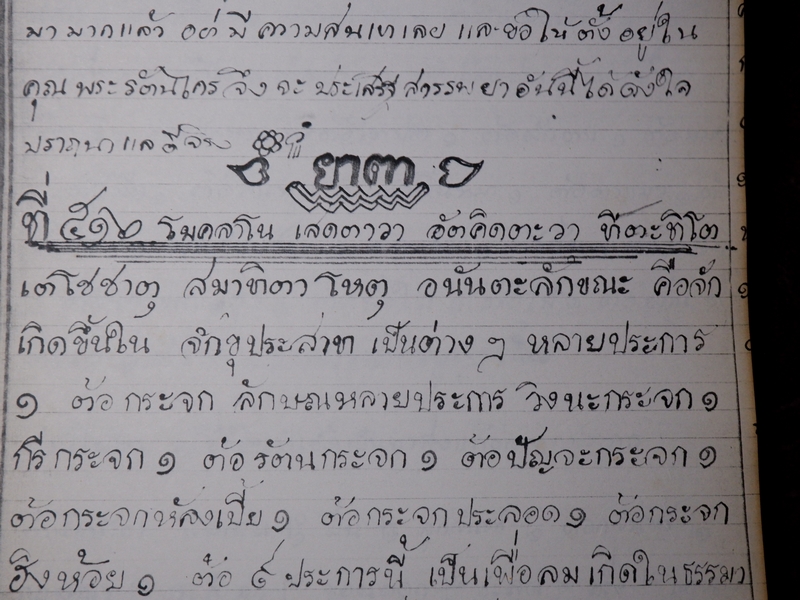 มามากแล้ว อย่ มีความสนเทเลย และขอให้ตั้งอยู่ใน
คุณพระรัตนไตรจึงจะประเสริฐ สารรพยาอันนี้ได้ดั่งใจ
ปรารถนาแลดีจริง
ยาตา
ที่ ๕๑๖ โมคลาโน เสดตาวา อัตคิดตะวา ทีตะทิโต
เตโชชาตุ สมาทิตา โหตุ อนันตะลักขณะ คือจัก
เกิดขึ้นใน จักขุประสาท เป็นต่าง ๆ หลายประการ
๑ ต้อกระจก ลักษณหลายประการ วิงนะกระจก ๑
กรีกระจก ๑ ต้อรัตนกระจก ๑ ต้อปัญจะกระจก ๑
ต้อกระจกหลังเบี้ย ๑ ต้อกระจกปะลอด ๑ ต้อกระจก
หิงห้อย ๑ ต้อ ๙ ประการนี้ เป็นเพื่อลมเกิดในธรรมา